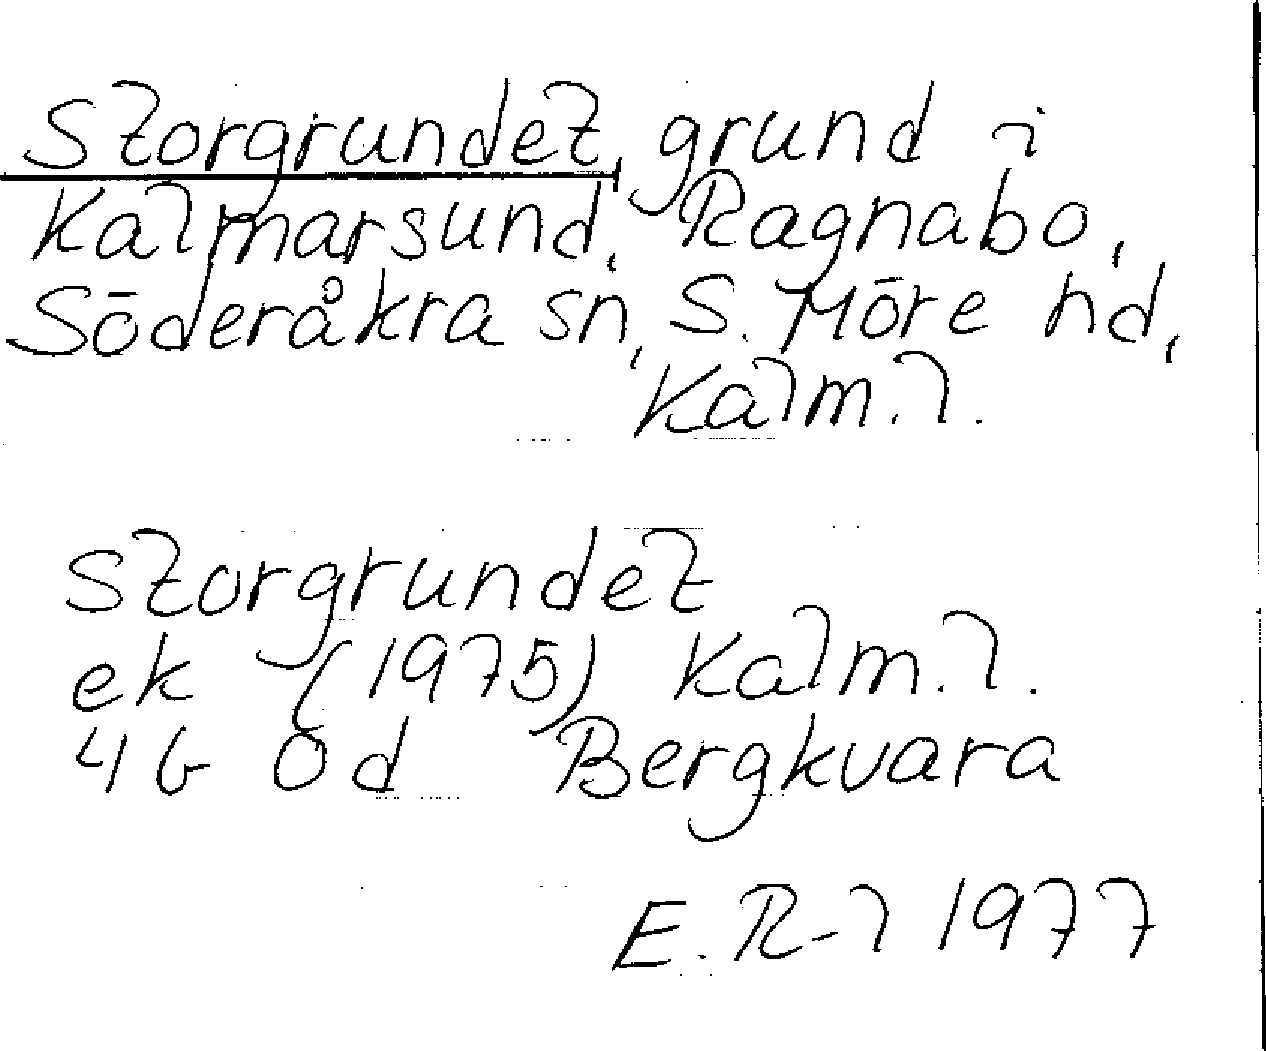 Storgrundet, grund i
Kalmarsund, Ragnabo,
Söderåkra sn, S. Möre hd,
Kalm. l.
Storgrundet
ek (1975) Kalm. l.
4G 0d Bergkvara
E. R-l 1977